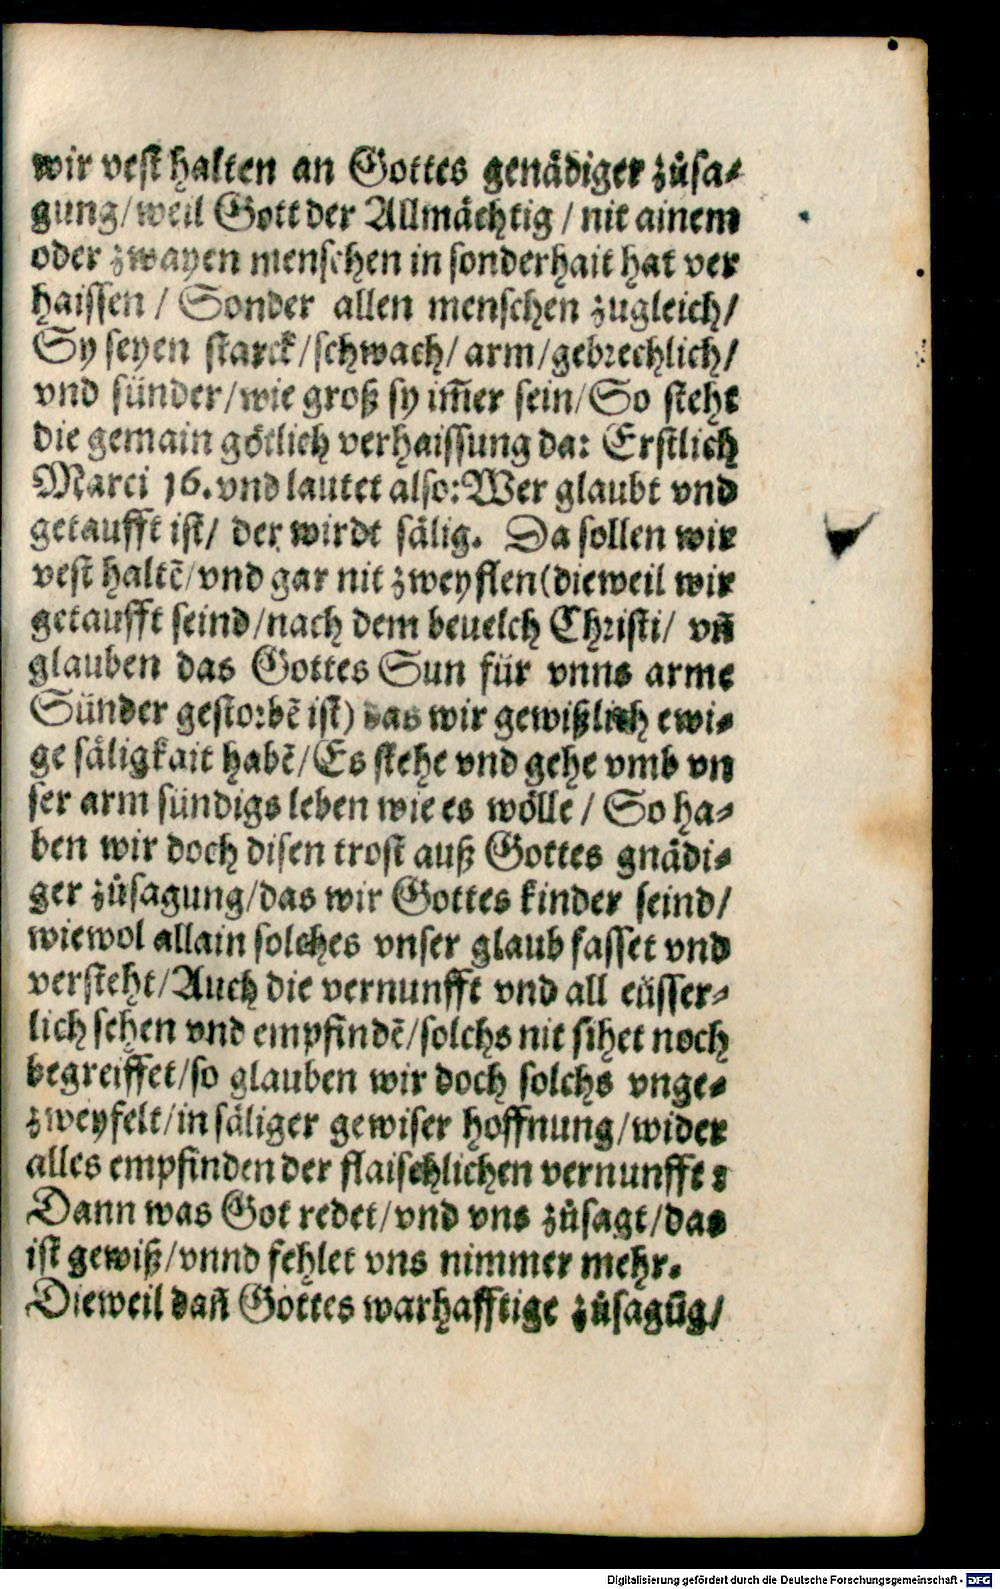 wir vest halten an Gottes genädiger zůsa⸗
gung/weil Gott der Allmächtig / nit ainem
oder zwayen menschen in sonderhait hat ver
haissen / Sonder allen menschen zugleich/
Sy seyen starck/schwach/ arm/gebrechlich/
vnd sünder/wie groß sy im̃er sein/So steht
die gemain götlich verhaissung da: Erstlich
Marci 16.vnd lautet also:Wer glaubt vnd
getaufft ist/ der wirdt sälig. Da sollen wir
vest haltẽ/vnd gar nit zweyflen(dieweil wir
getaufft seind/nach dem beuelch Christi/ vñ
glauben das Gottes Sun für vnns arme
Sünder gestorbẽ ist) das wir gewißlich ewi⸗
ge säligkait habẽ/Es stehe vnd gehe vmb vn
ser arm sündigs leben wie es wölle / So ha⸗
ben wir doch disen trost auß Gottes gnädi⸗
ger zůsagung/das wir Gottes kinder seind/
wiewol allain solches vnser glaub fasset vnd
versteht/Auch die vernunfft vnd all eüsser⸗
lich sehen vnd empfindẽ/solchs nit sihet noch
begreiffet/so glauben wir doch solchs vnge⸗
zweyfelt/in säliger gewiser hoffnung/wider
alles empfinden der flaischlichen vernunfft:
Dann was Got redet/vnd vns zůsagt/das
ist gewiß/vnnd fehlet vns nimmer mehr.
Dieweil dañ Gottes warhafftige zůsagũg/
Digitalisierung gefördert durch die Deutsche Forschungsgemeinschaft - DFG